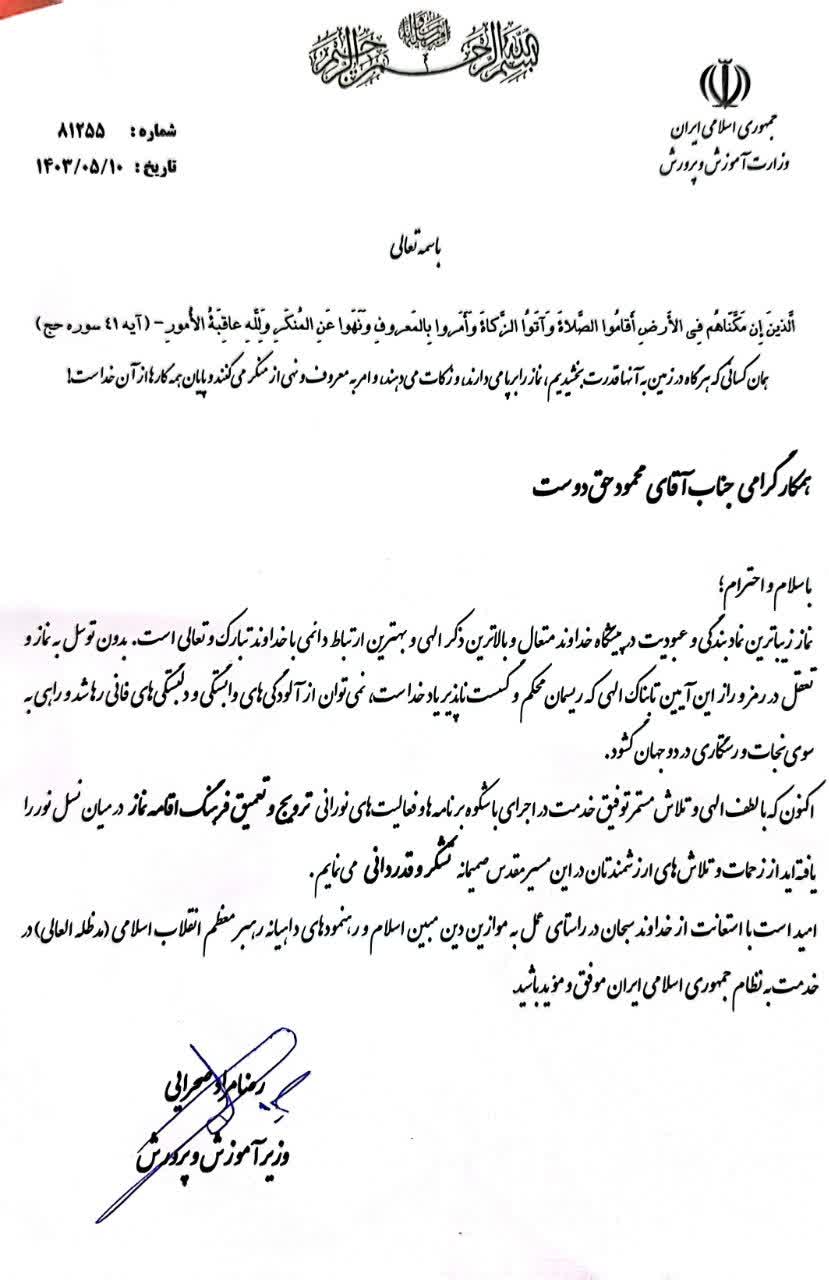 بسم الله الرحمن الرحیم
جمهوری اسلامی ایران
وزارت آموزش و پرورش
شماره : ۸۱۲۵۵
تاریخ : ۱۴۰۳/۰۵/۱۰
باسمه تعالی
الَّذینَ إِن مَکَّنّاهُم فِی الأَرضِ أَقامُوا الصَّلاةَ وَآتَوُا الزَّکاةَ وَأَمَروا بِالمَعروفِ وَنَهَوا عَنِ المُنکَرِ وَلِلَّهِ عاقِبَةُ الأُمورِ– (آیه ۴۱ سوره حج)
همان کسانی که هرگاه در زمین به آنها قدرت بخشیدیم، نماز را برپا می دارند، و زکات می دهند، و امر به معروف و نهی از منکر می کنند و پایان همه کارها از آن خداست!
همکار گرامی جناب آقای محمود حق دوست
با سلام و احترام؛
نماز زیباترین نماد بندگی و عبودیت در پیشگاه خداوند متعال و بالاترین ذکر الهی و بهترین ارتباط دائمی با خداوند تبارک و تعالی است. بدون توسل به نماز و
تعقل در رمز و راز این آیین تابناک الهی که ریسمان محکم و گسست ناپذیر یاد خداست، نمی توان از آلودگی های وابستگی و دلبستگی های فانی رها شد و راهی به
سوی نجات و رستگاری در دو جهان گشود.
اکنون که با لطف الهی و تلاش مستمر توفیق خدمت در اجرای باشکوه برنامه ها و فعالیت های نورانی ترویج و تعمیق فرهنگ اقامه نماز در میان نسل نور را
یافته اید از زحمات و تلاش های ارزشمندتان در این مسیر مقدس صمیمانه تشکر و قدردانی می نمایم.
امید است با استعانت از خداوند سبحان در راستای عمل به موازین دین مبین اسلام و رهنمودهای داهیانه رهبر معظم انقلاب اسلامی (مدظله العالی) در
خدمت به نظام جمهوری اسلامی ایران موفق و مؤید باشید.
رضامراد صحرایی
وزیر آموزش و پرورش